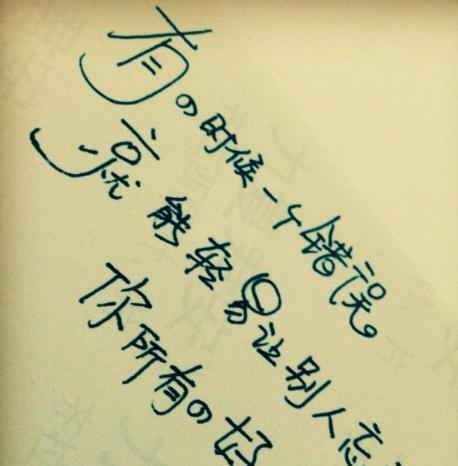 有の时候一个错误。
就能轻易让别人忘
你所有の好